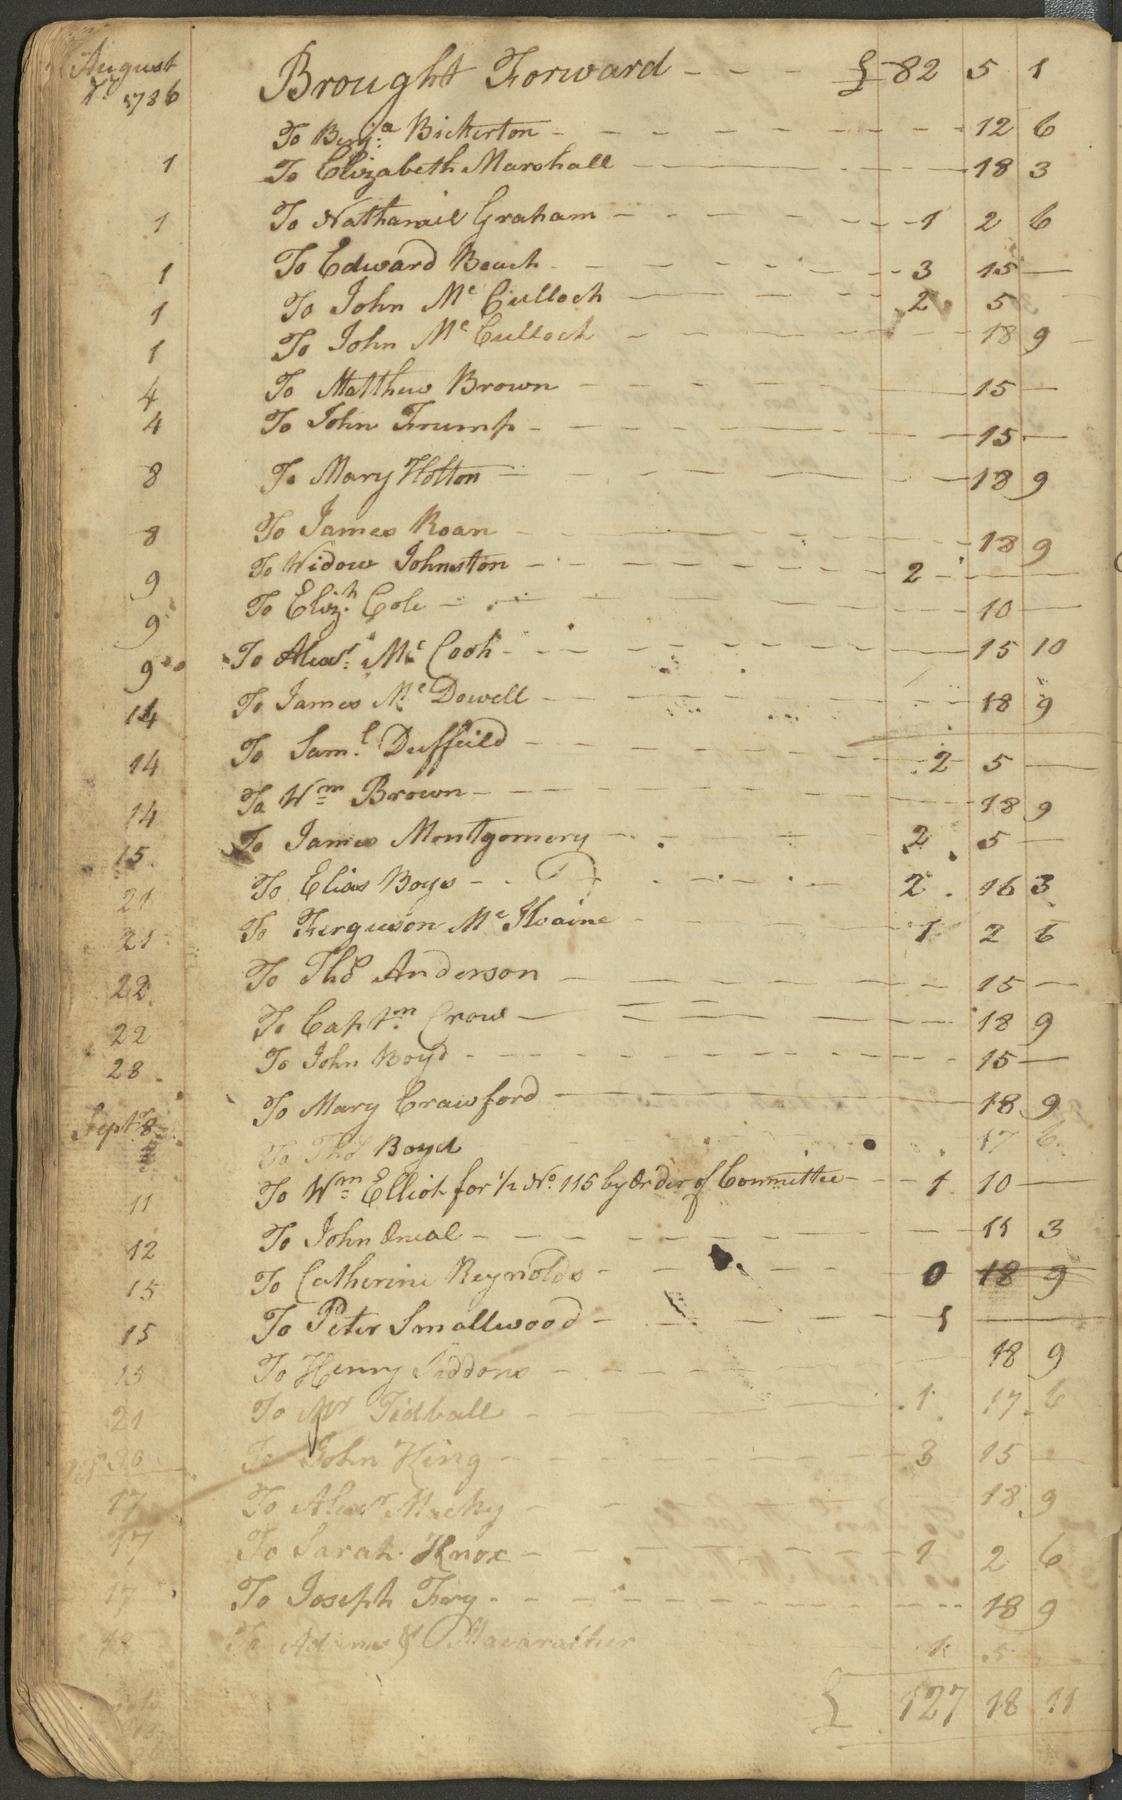 August
1786 Brought Forward - - - £ 82 5 1
To Benj.a Bickerton - - - 12 6
1 To Elizabeth Marshall - - - 18 3
1 To Nathaniel Graham - - - 1 2 6
1 To Edward Beach - - - 3 15 —
1 To John Mc Culloch - - - 2 5
1 To John Mc Culloch - - - 18 9
4 To Matthew Brown - - - 15 —
4 To John Frump - - - 15 —
8 To Mary Holton - - - 18 9
8 To James Roan - - - 18 9
9 To Widow Johnston - - - 2 — —
9 To Eliz.h Cole - - - 10 —
9 To Alexr. Mc Cooh - - - 15 10
14 To James Mc Dowell - - - 18 9
14 To Sam.l Duffeild - - - 2 5 —
14 To Wm Brown - - - 18 9
15 To James Montgomery - - - 2 5 —
21 To Elias Boys - - - 2 16 3
21 To Ferguson Mc Ilvaine - - - 1 2 6
22 To Tho Anderson - - - 15 —
22 To Captn. Crow - - - 18 9
28 To John Boyd - - - 15 —
Septr 8 To Mary Crawford - - - 18 9
To Tho Boyd 17 6
11 To Wm Elliot for 1/2 No. 115 by Order of Committee - - - 1 10 —
12 To John Oneal - - - 11 3
15 To Catherine Reynolds - - - 0 18 9
15 To Peter Smallwood - - - 1 — —
15 To Henry Siddons - - - 18 9
21 To Mr Tidball - - - 1 17 6
30 To John King - - - 3 15 —
17 To Alexr Macky - - - 18 9
17 To Sarah Knox - - - 1 2 6
17 To Joseph Fry - - - 18 9
18 To 1 5
£ 127 18 11